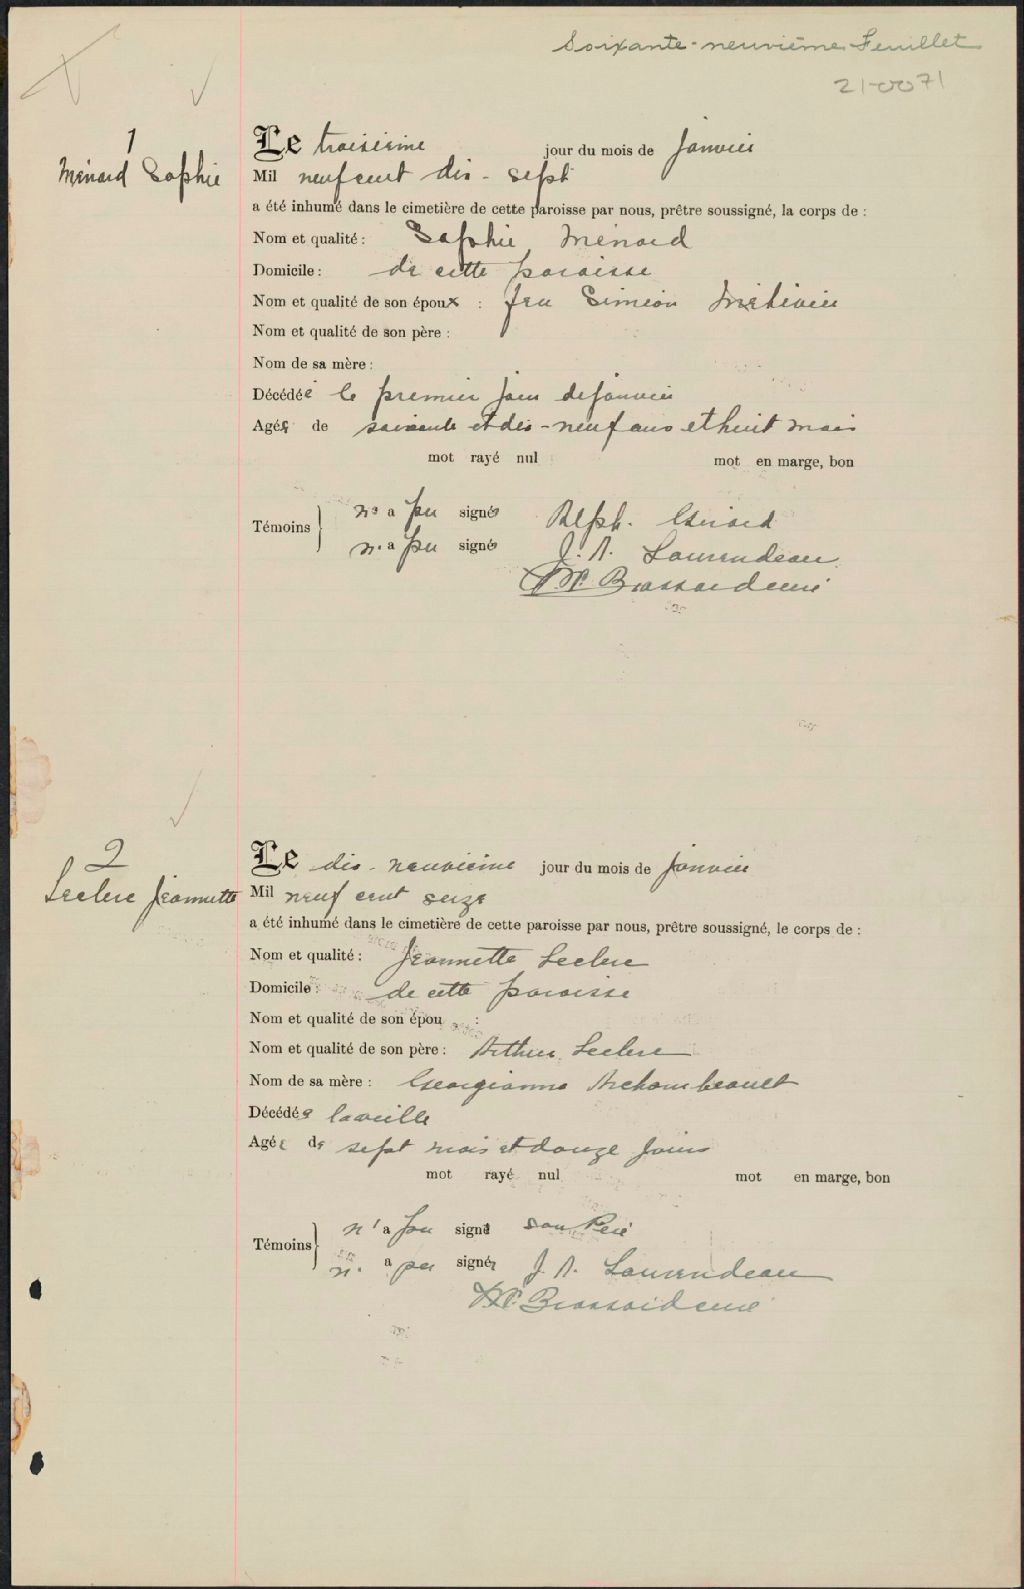 Soixante-neuvième Feuillet
21-0071
1
Ménard Sophie
Le troisième jour du mois de janvier
Mil neuf cent dix-sept
a été inhumé dans le cimetière de cette paroisse par nous, prêtre soussigné, la corps de :
Nom et qualité : Sophie Ménard
Domicile : de cette paroisse
Nom et qualité de son époux : feu Siméon Métivier
Nom et qualité de son père :
Nom de sa mère :
Décédée le premier jour de janvier
Agée de soixante et dix-neuf ans et huit mois
mot rayé nul mot en marge, bon
Témoins
n'a pu signer Alph. Girard
n'a pu signer J. A. Laurendeau
Brassard curé
2
Leclerc Jeannette
Le dix-neuvième jour du mois de janvier
Mil neuf cent seize
a été inhumé dans le cimetière de cette paroisse par nous, prêtre soussigné, le corps de :
Nom et qualité : Jeannette Leclerc
Domicile : de cette paroisse
Nom et qualité de son épou :
Nom et qualité de son père : Arthur Leclerc
Nom de sa mère : Georgianna Archambeault
Décédée la veille
Agée de sept mois et douze jours
mot rayé nul mot en marge, bon
Témoins
n'a pu signé son Père
n'a pu signer J. A. Laurendeau
Brassard curé